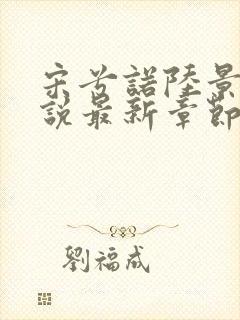 宋兮諾陸景
說最新章節
劉福成